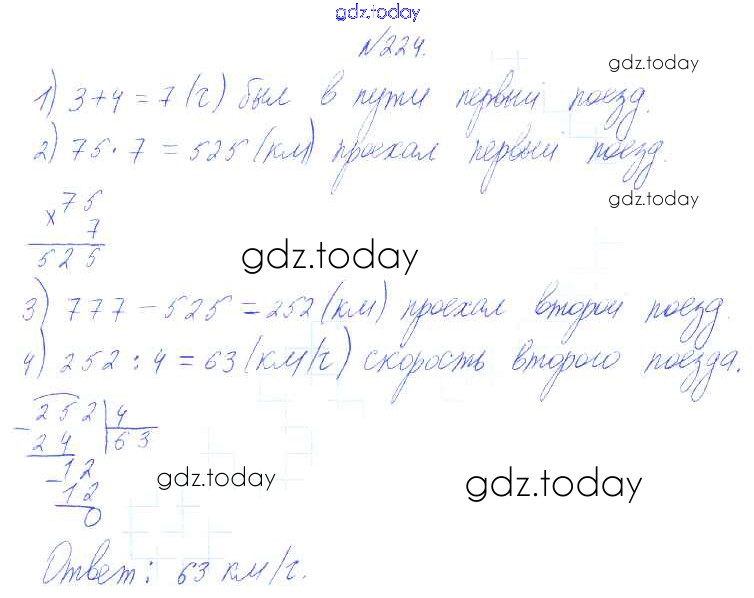 gdz.today
№224.
gdz.today
1) 3+4 = 7 (ч) был в пути первый поезд.
2) 75 · 7 = 525 (км) проехал первый поезд.
gdz.today
× 75
7
525
gdz.today
3) 777 - 525 = 252 (км) проехал второй поезд.
4) 252 : 4 = 63 (км/ч) скорость второго поезда.
- 252 | 4
24 | 63
- 12
12
0
gdz.today
gdz.today
Ответ: 63 км/ч.